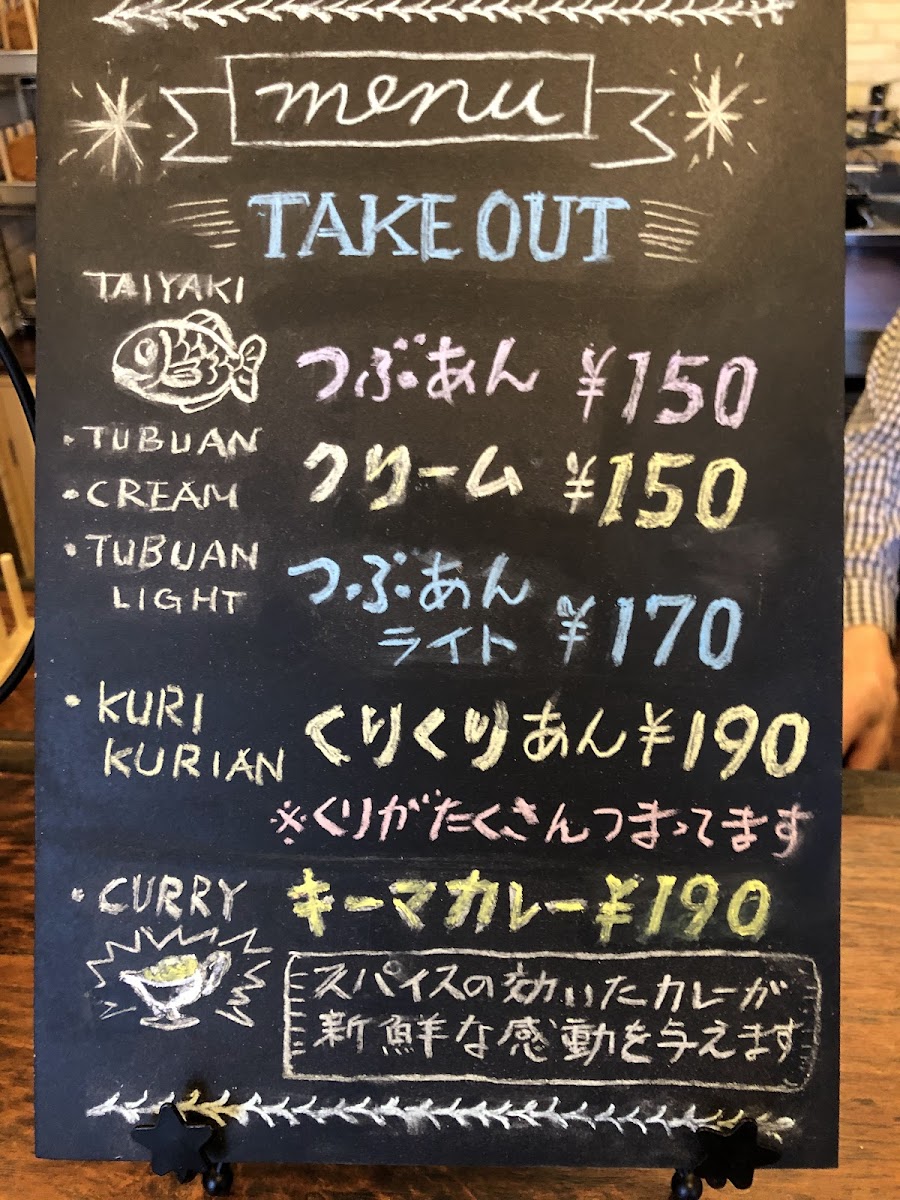 menu
TAKE OUT
TAIYAKI
・TUBUAN
・CREAM
・TUBUAN
LIGHT
つぶあん ¥150
クリーム ¥150
つぶあん
ライト ¥170
・KURI
KURIAN
くりくりあん ¥190
※くりがたくさんつまってます
・CURRY
キーマカレー ¥190
スパイスの効いたカレーが
新鮮な感動を与えます